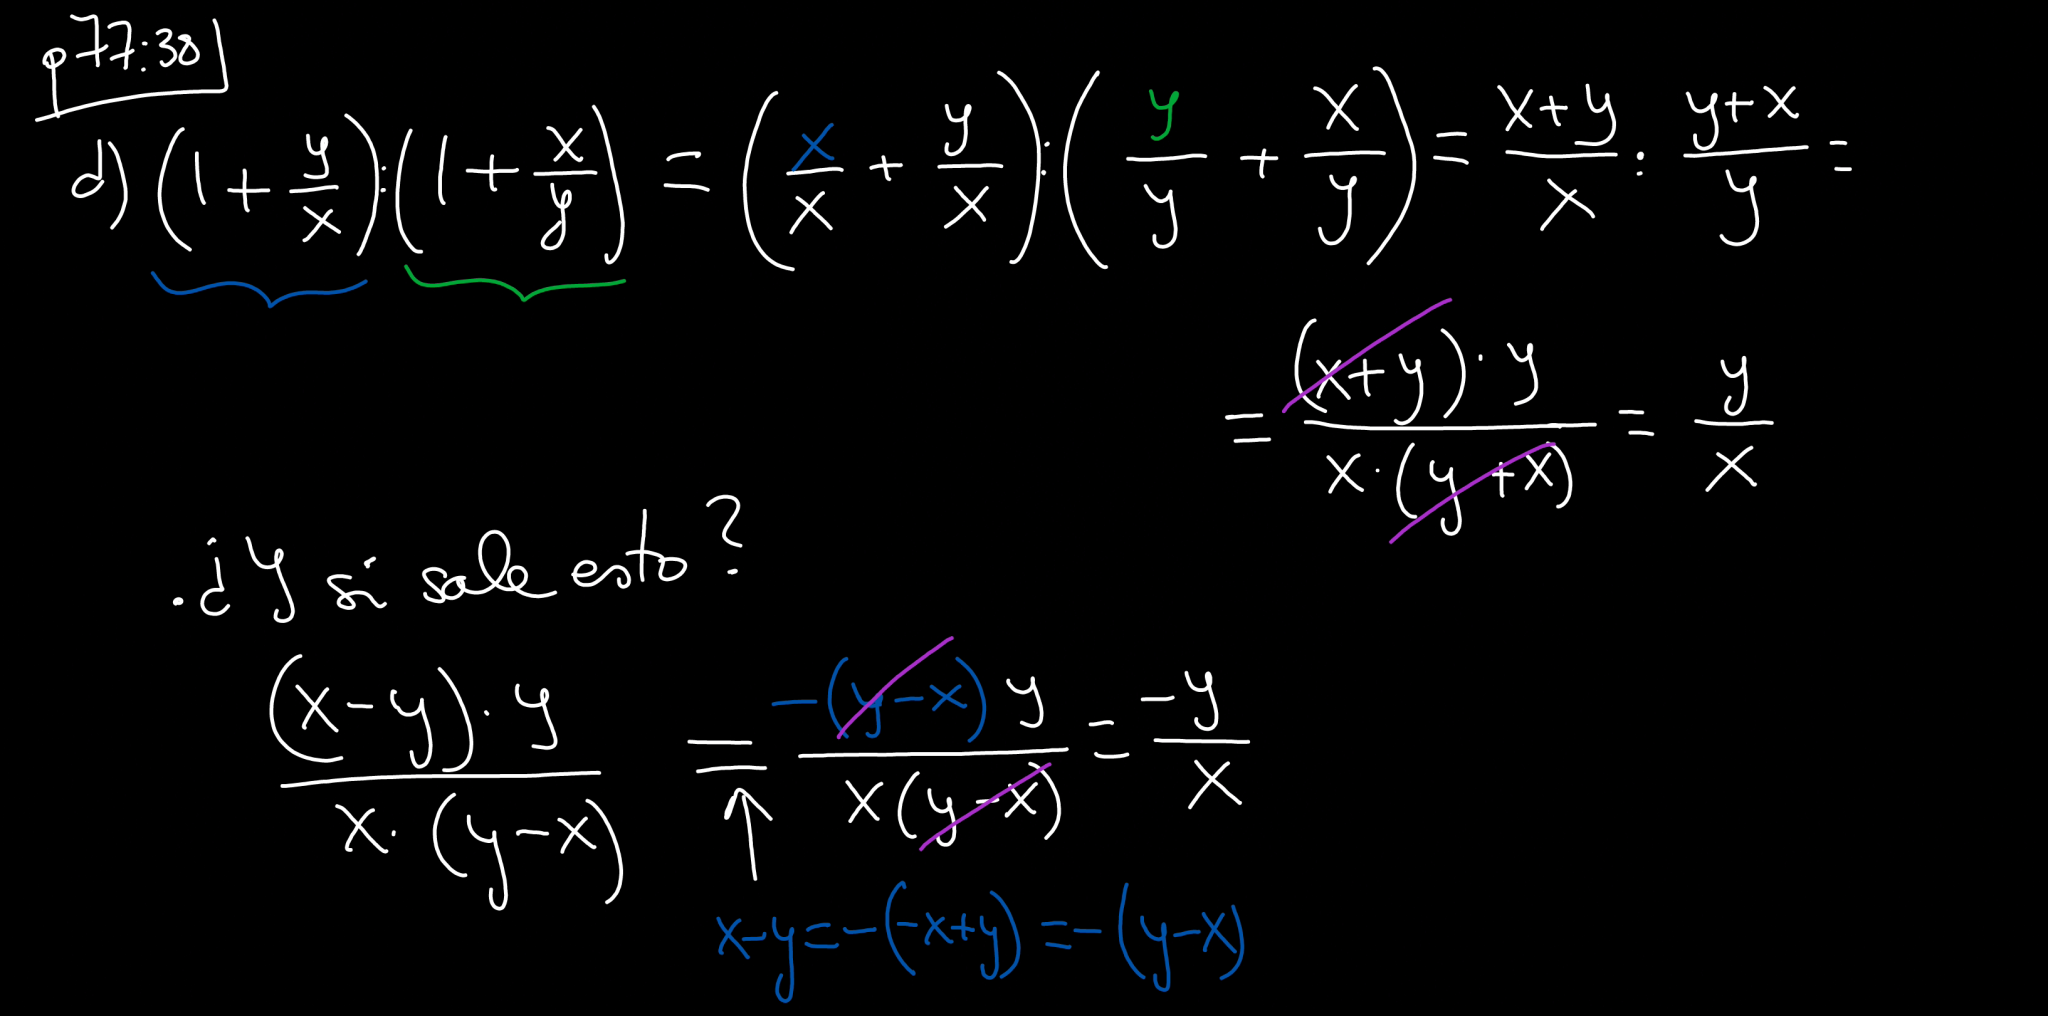 p77:38
d) (1 + y/x) : (1 + x/y) = (x/x + y/x) : (y/y + x/y) = x+y/x : y+x/y =
= (x+y)·y / x·(y+x) = y/x
· ¿Y si sale esto?
(x-y)·y / x·(y-x) = -(y-x) y / x(y-x) = -y/x
x-y=-(-x+y)=-(y-x)